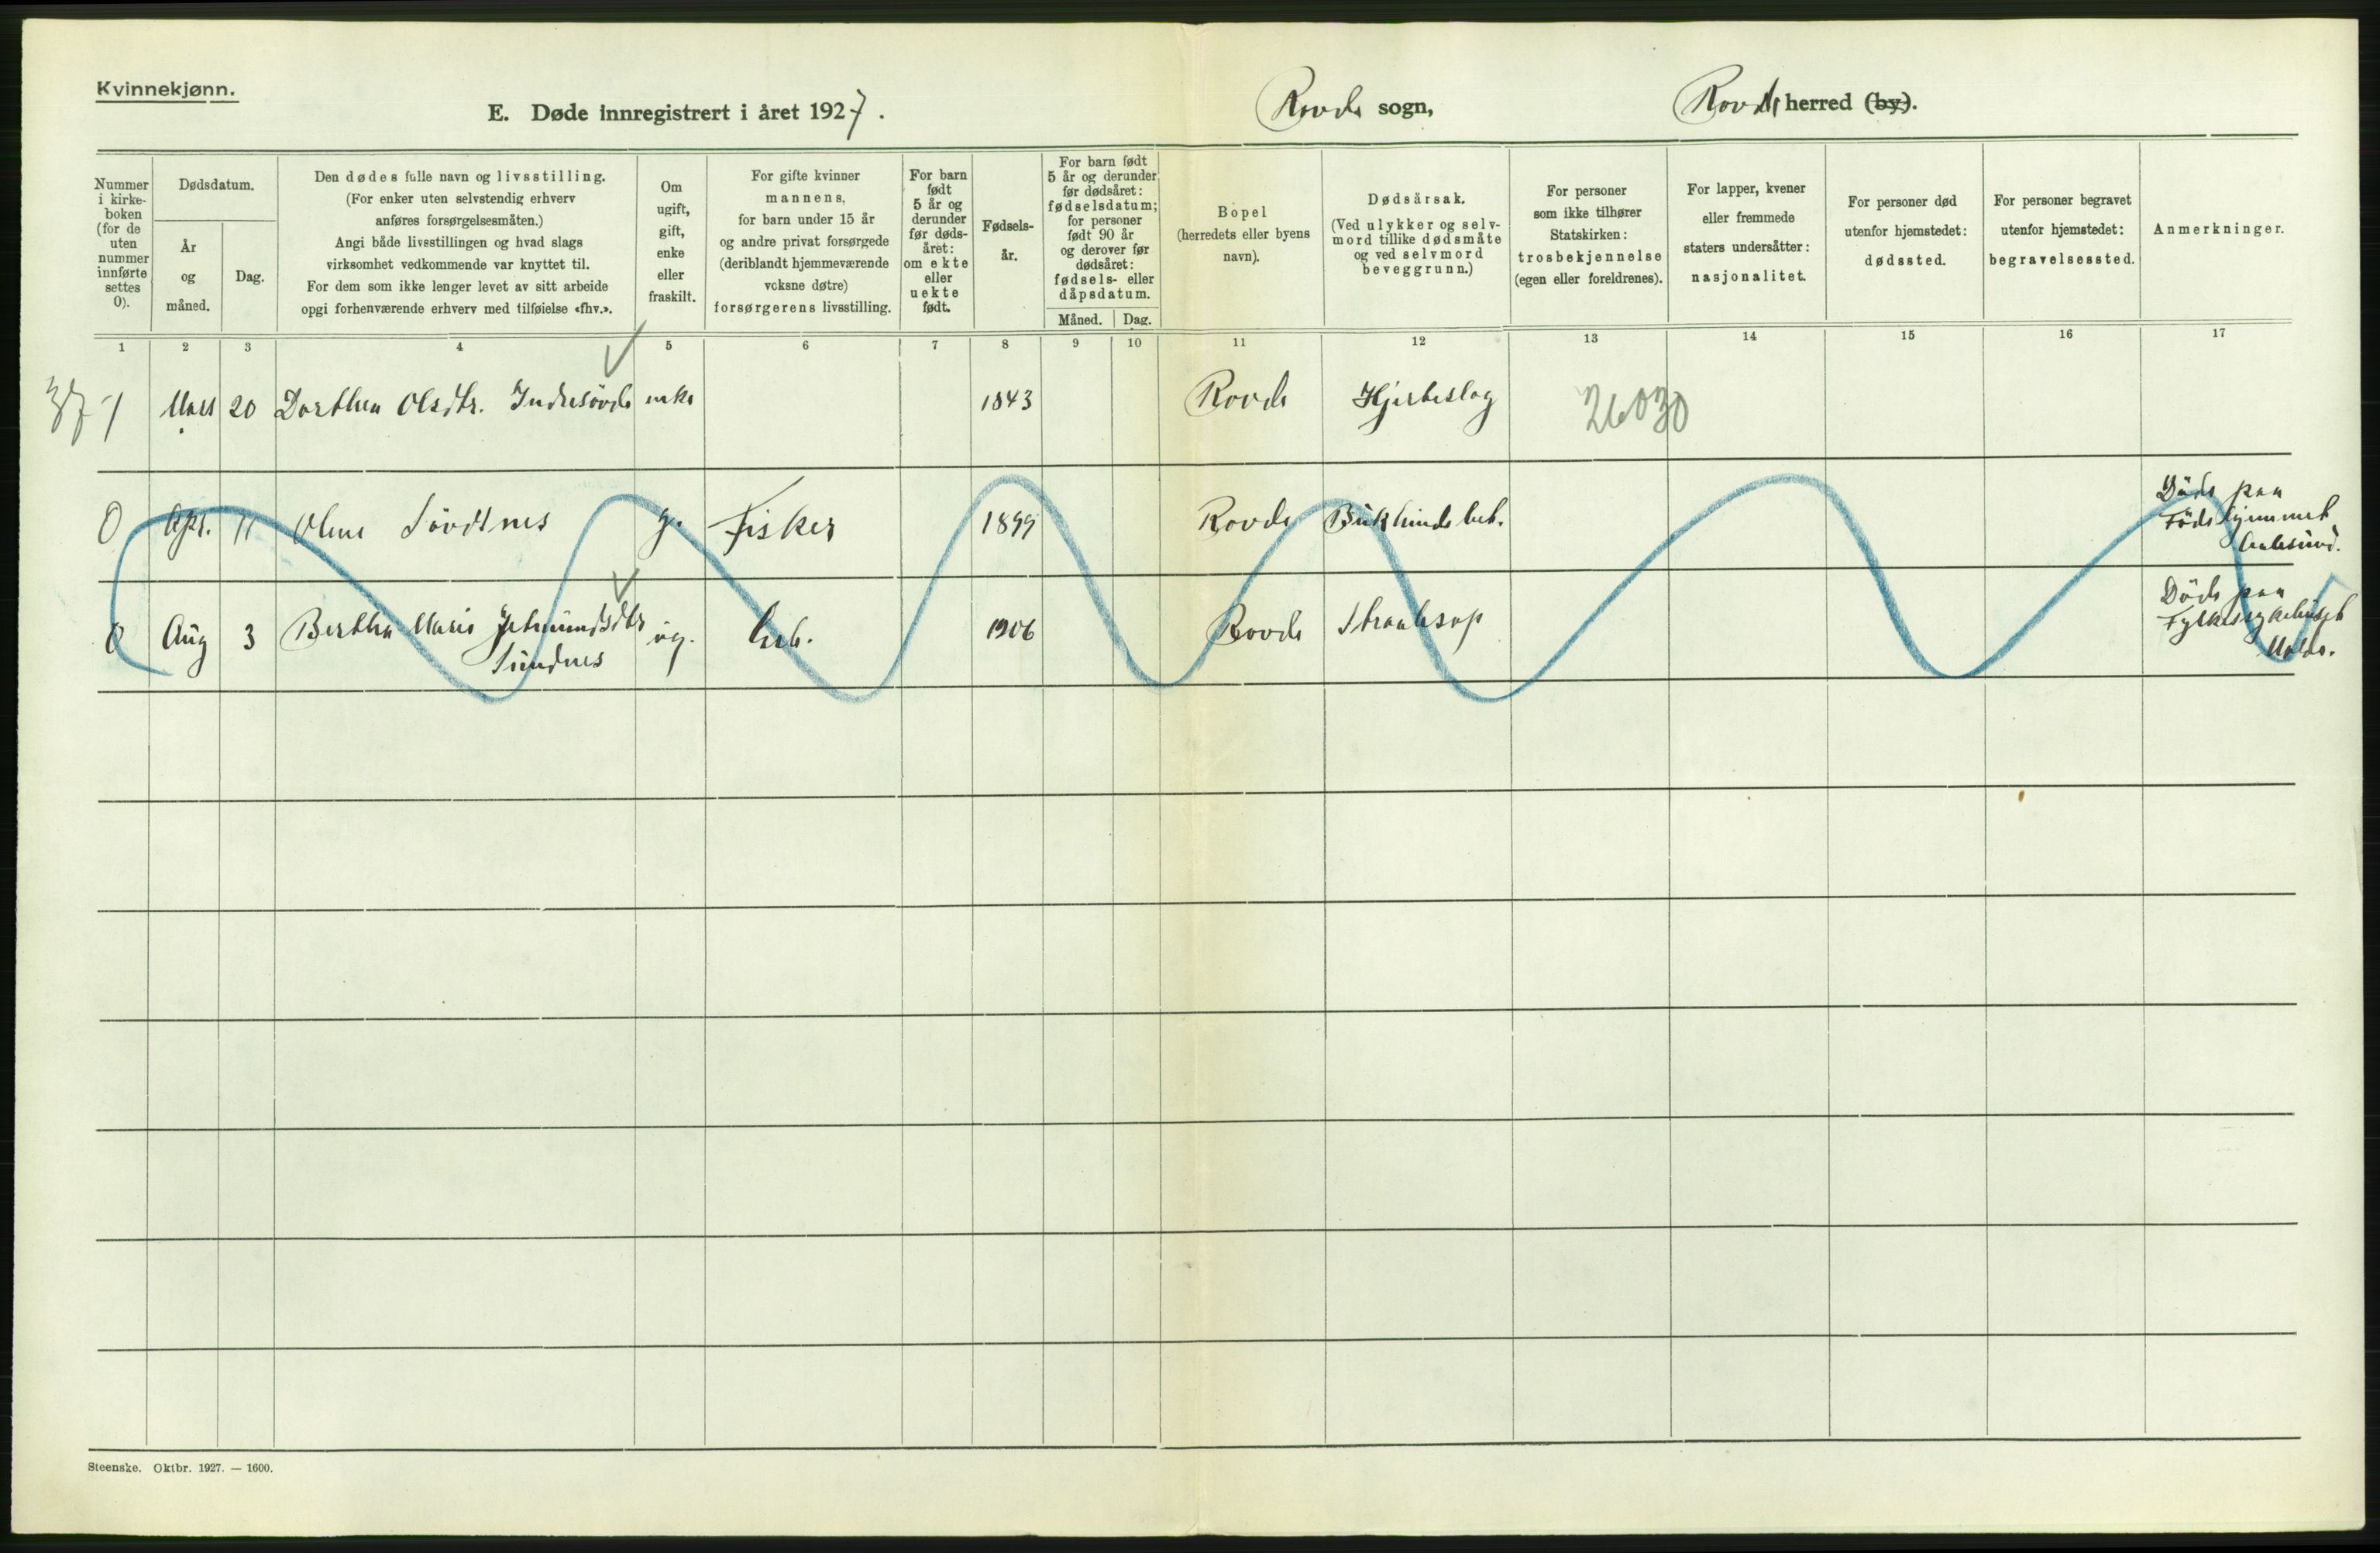 Kvinnekjønn.
E. Døde innregistrert i året 1927. Rovde sogn, Rovde herred (by).
Nummer i kirke- boken (for de uten nummer innførte settes 0).
Dødsdatum.
År og måned.
Dag.
Den dødes fulle navn og livsstilling.
(For enker uten selvstendig erhverv
anføres forsørgelsesmåten.)
Angi både livsstillingen og hvad slags
virksomhet vedkommende var knyttet til.
For dem som ikke lenger levet av sitt arbeide
opgi forhenværende erhverv med tilføielse «fhv.».
Om ugift, gift, enke eller fraskilt.
For gifte kvinner
mannens,
for barn under 15 år
og andre privat forsørgede
(deriblandt hjemmeværende
voksne døtre)
forsørgerens livsstilling.
For barn født 5 år og derunder før døds- året: om ekte eller uekte født.
Fødsels- år.
For barn født
5 år og derunder
før dødsåret:
fødselsdatum;
for personer
født 90 år
og derover før
dødsåret:
fødsels- eller
dåpsdatum.
Måned. Dag.
Bopel
(herredets eller byens
navn).
Dødsårsak.
(Ved ulykker og selv-
mord tillike dødsmåte
og ved selvmord
beveggrunn.)
For personer
som ikke tilhører
Statskirken:
trosbekjennelse
(egen eller foreldrenes).
For lapper, kvener
eller fremmede
staters undersåtter:
nasjonalitet.
For personer død
utenfor hjemstedet:
dødssted.
For personer begravet
utenfor hjemstedet:
begravelsessted.
Anmerkninger.
1 2 3 4 5 6 7 8 9 10 11 12 13 14 15 16 17
37 1 Mars 20 Dorthea Olsdtr. Indresövde enke 1843 Rovde Hjerteslag 26030
0 Apr. 11 Oline Sövdsnes g. Fisker 1899 Rovde Bukhindebet. Döde paa
Födehjemmet
Aalesund.
0 Aug 3 Berthe Marie Jetmundsdtr ug. Arb. 1906 Rovde Strahesop Döde paa
Sundnes Fylkessykehuset
Molde.
Steenske. Oktbr. 1927. — 1600.